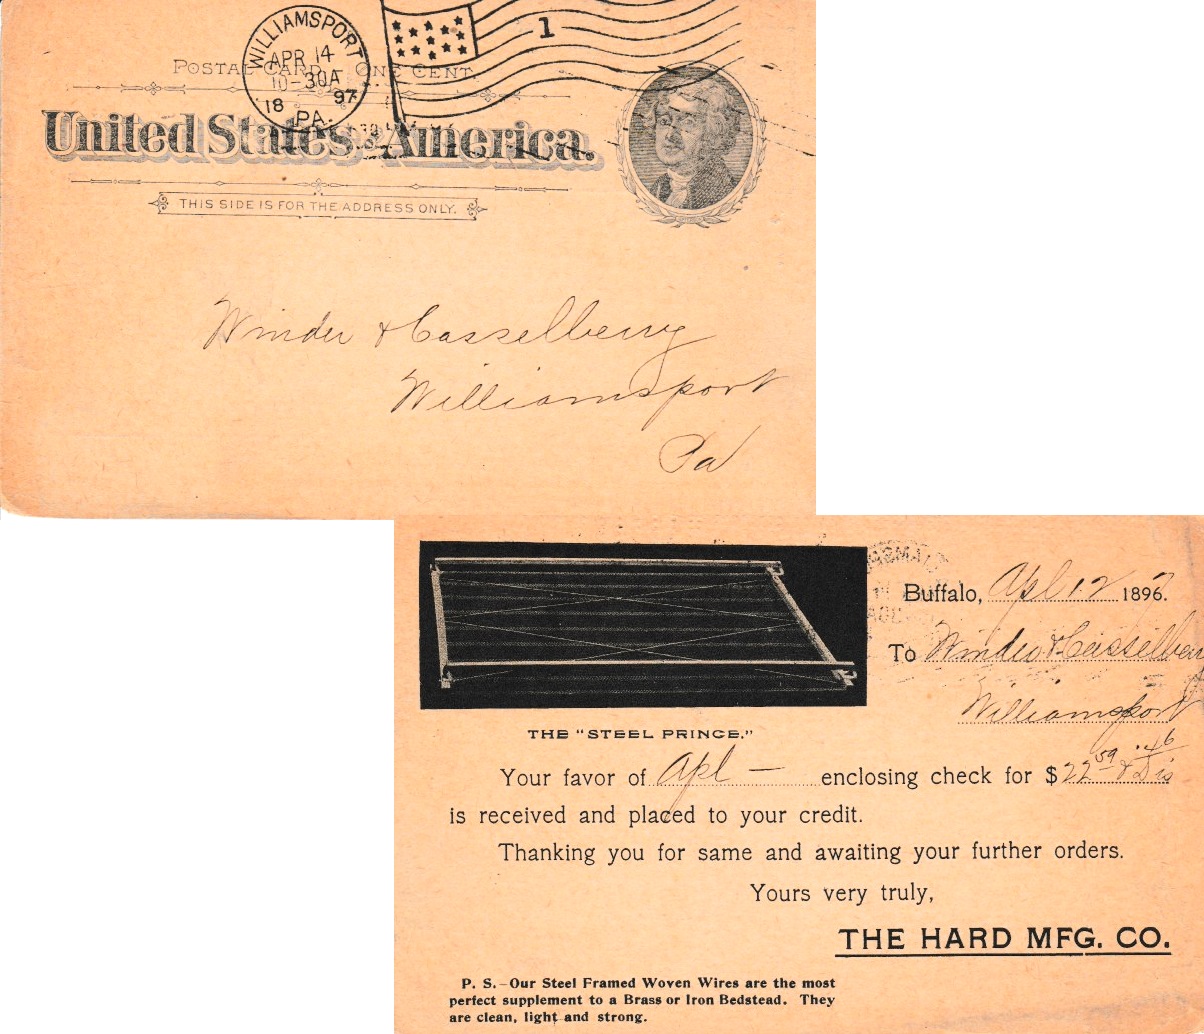 WILLIAMSPORT
APR 14
10-30A
18 97
PA.
1
POSTAL CARD ONE CENT.
United States America.
THIS SIDE IS FOR THE ADDRESS ONLY.
Winder & Casselberry
Williamsport
Pa
THE "STEEL PRINCE."
Buffalo, Apl 12 1897.
To Winder & Casselberry
Williamsport
Your favor of Apl — enclosing check for $22 59 & Dis .46
is received and placed to your credit.
Thanking you for same and awaiting your further orders.
Yours very truly,
THE HARD MFG. CO.
P. S.—Our Steel Framed Woven Wires are the most
perfect supplement to a Brass or Iron Bedstead. They
are clean, light and strong.